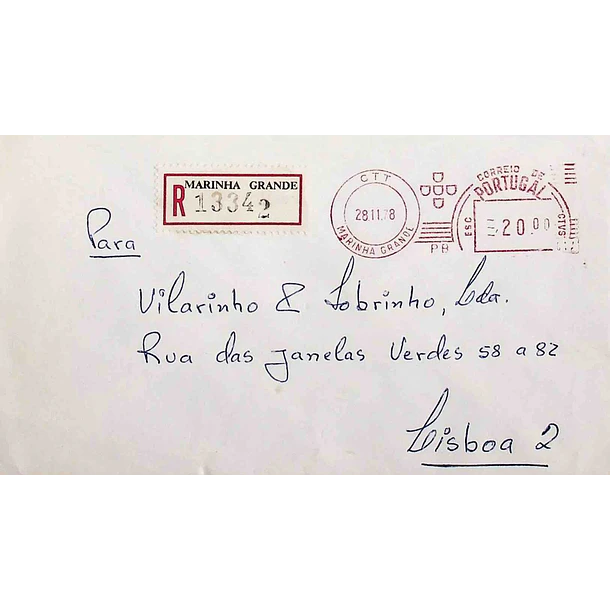 MARINHA GRANDE
R 13342
CTT
28.11.78
MARINHA GRANDE
PB
CORREIO DE
PORTUGAL
ESC 20.00 CTVS
Para
Vilarinho & Sobrinho, Lda.
Rua das Janelas Verdes 58 a 82
Lisboa 2